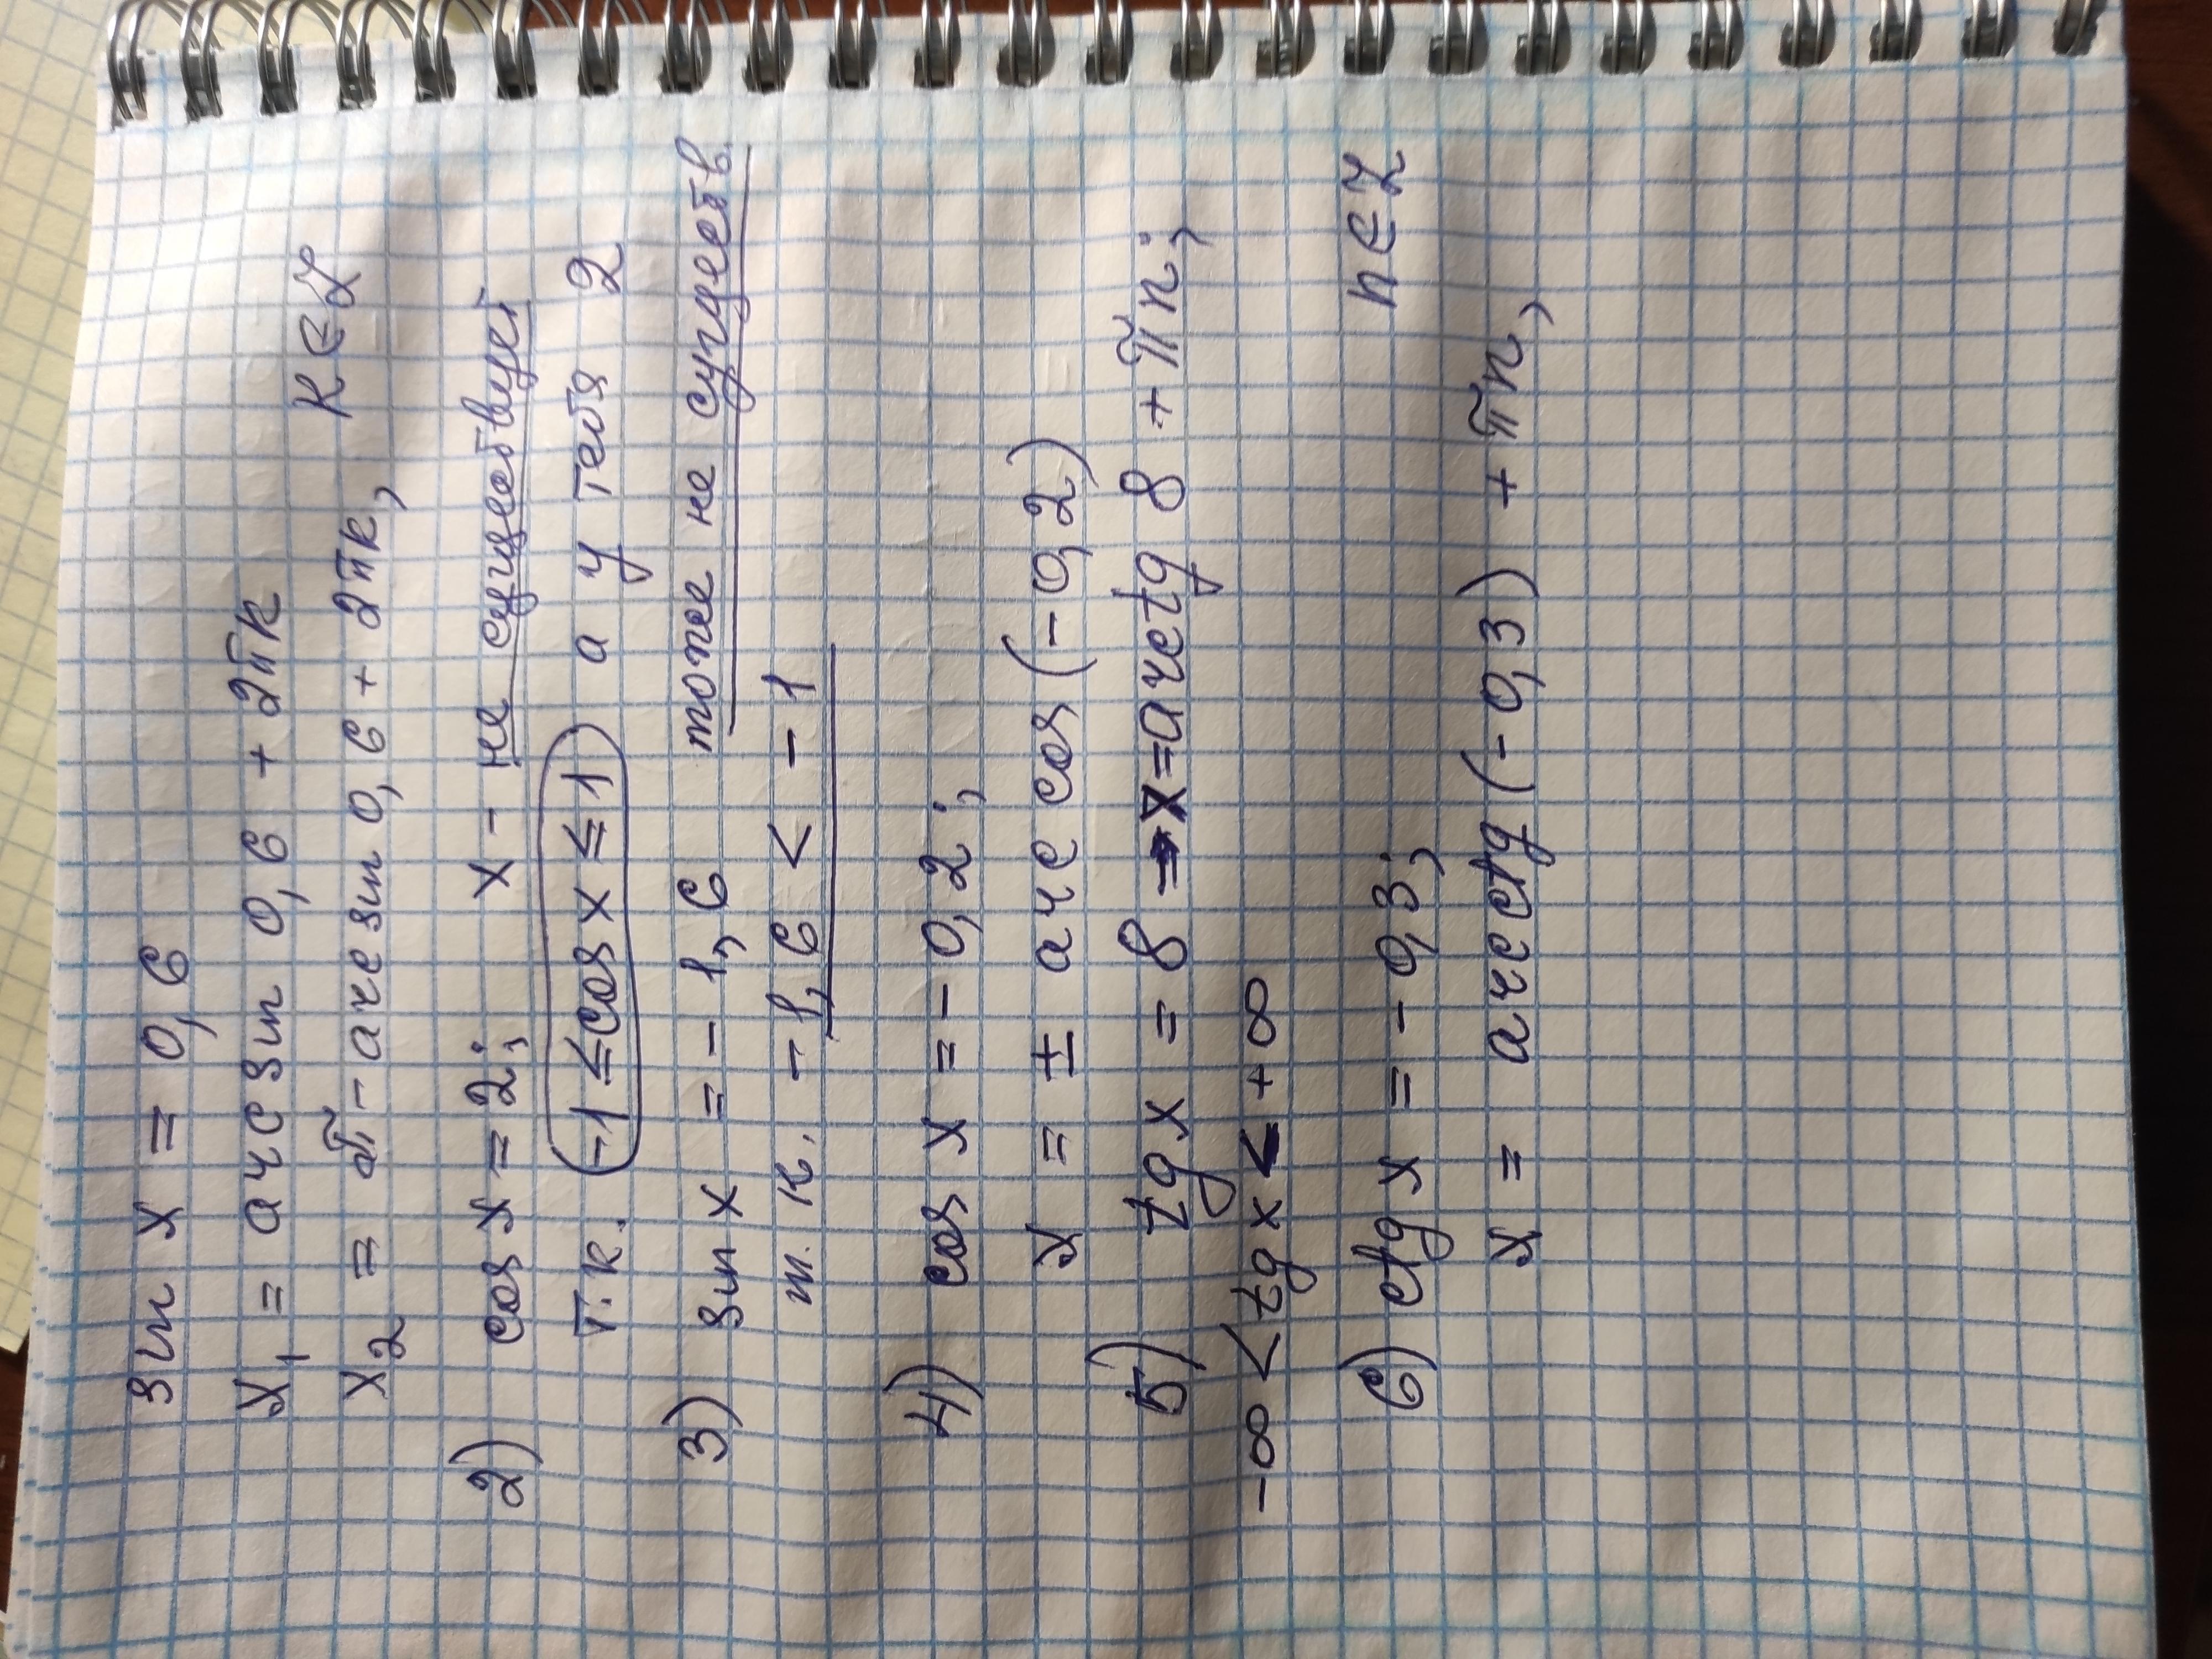 sin x = 0,6
x₁ = arcsin 0,6 + 2πk
x₂ = π - arcsin 0,6 + 2πk,
k ∈ Z
2) cos x = 2; x - не существует
т.к. (-1 ≤ cos x ≤ 1) а у тебя 2
3) sin x = -1,6 тоже не существ.
т.к. -1,6 < -1
4) cos x = -0,2;
x = ± arccos (-0,2)
5) tg x = 8 ⇒ x = arctg 8 + πn;
-∞ < tg x < +∞
n ∈ Z
6) ctg x = -0,3;
x = arcctg (-0,3) + πn,